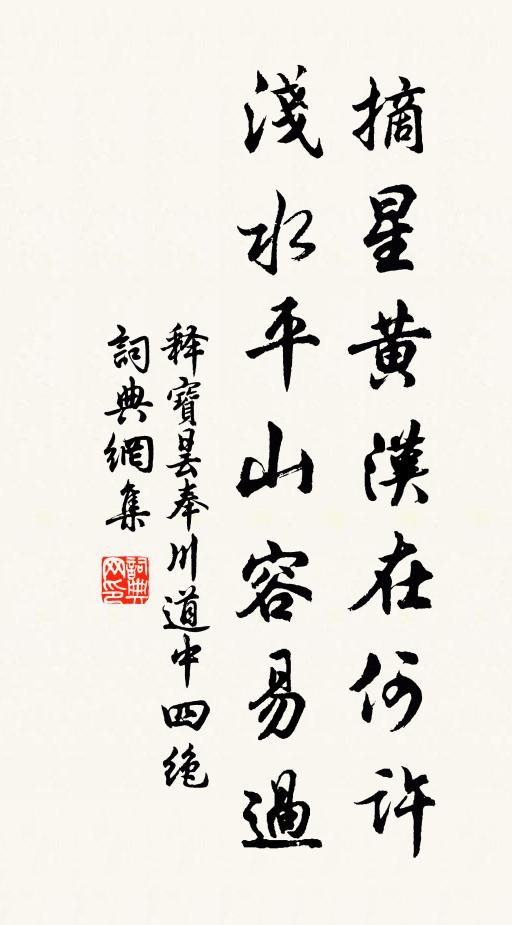 摘星黄漢在何許
淺水平山容易過
释寶曇奉川道中四绝
詞典網集
詞典网印